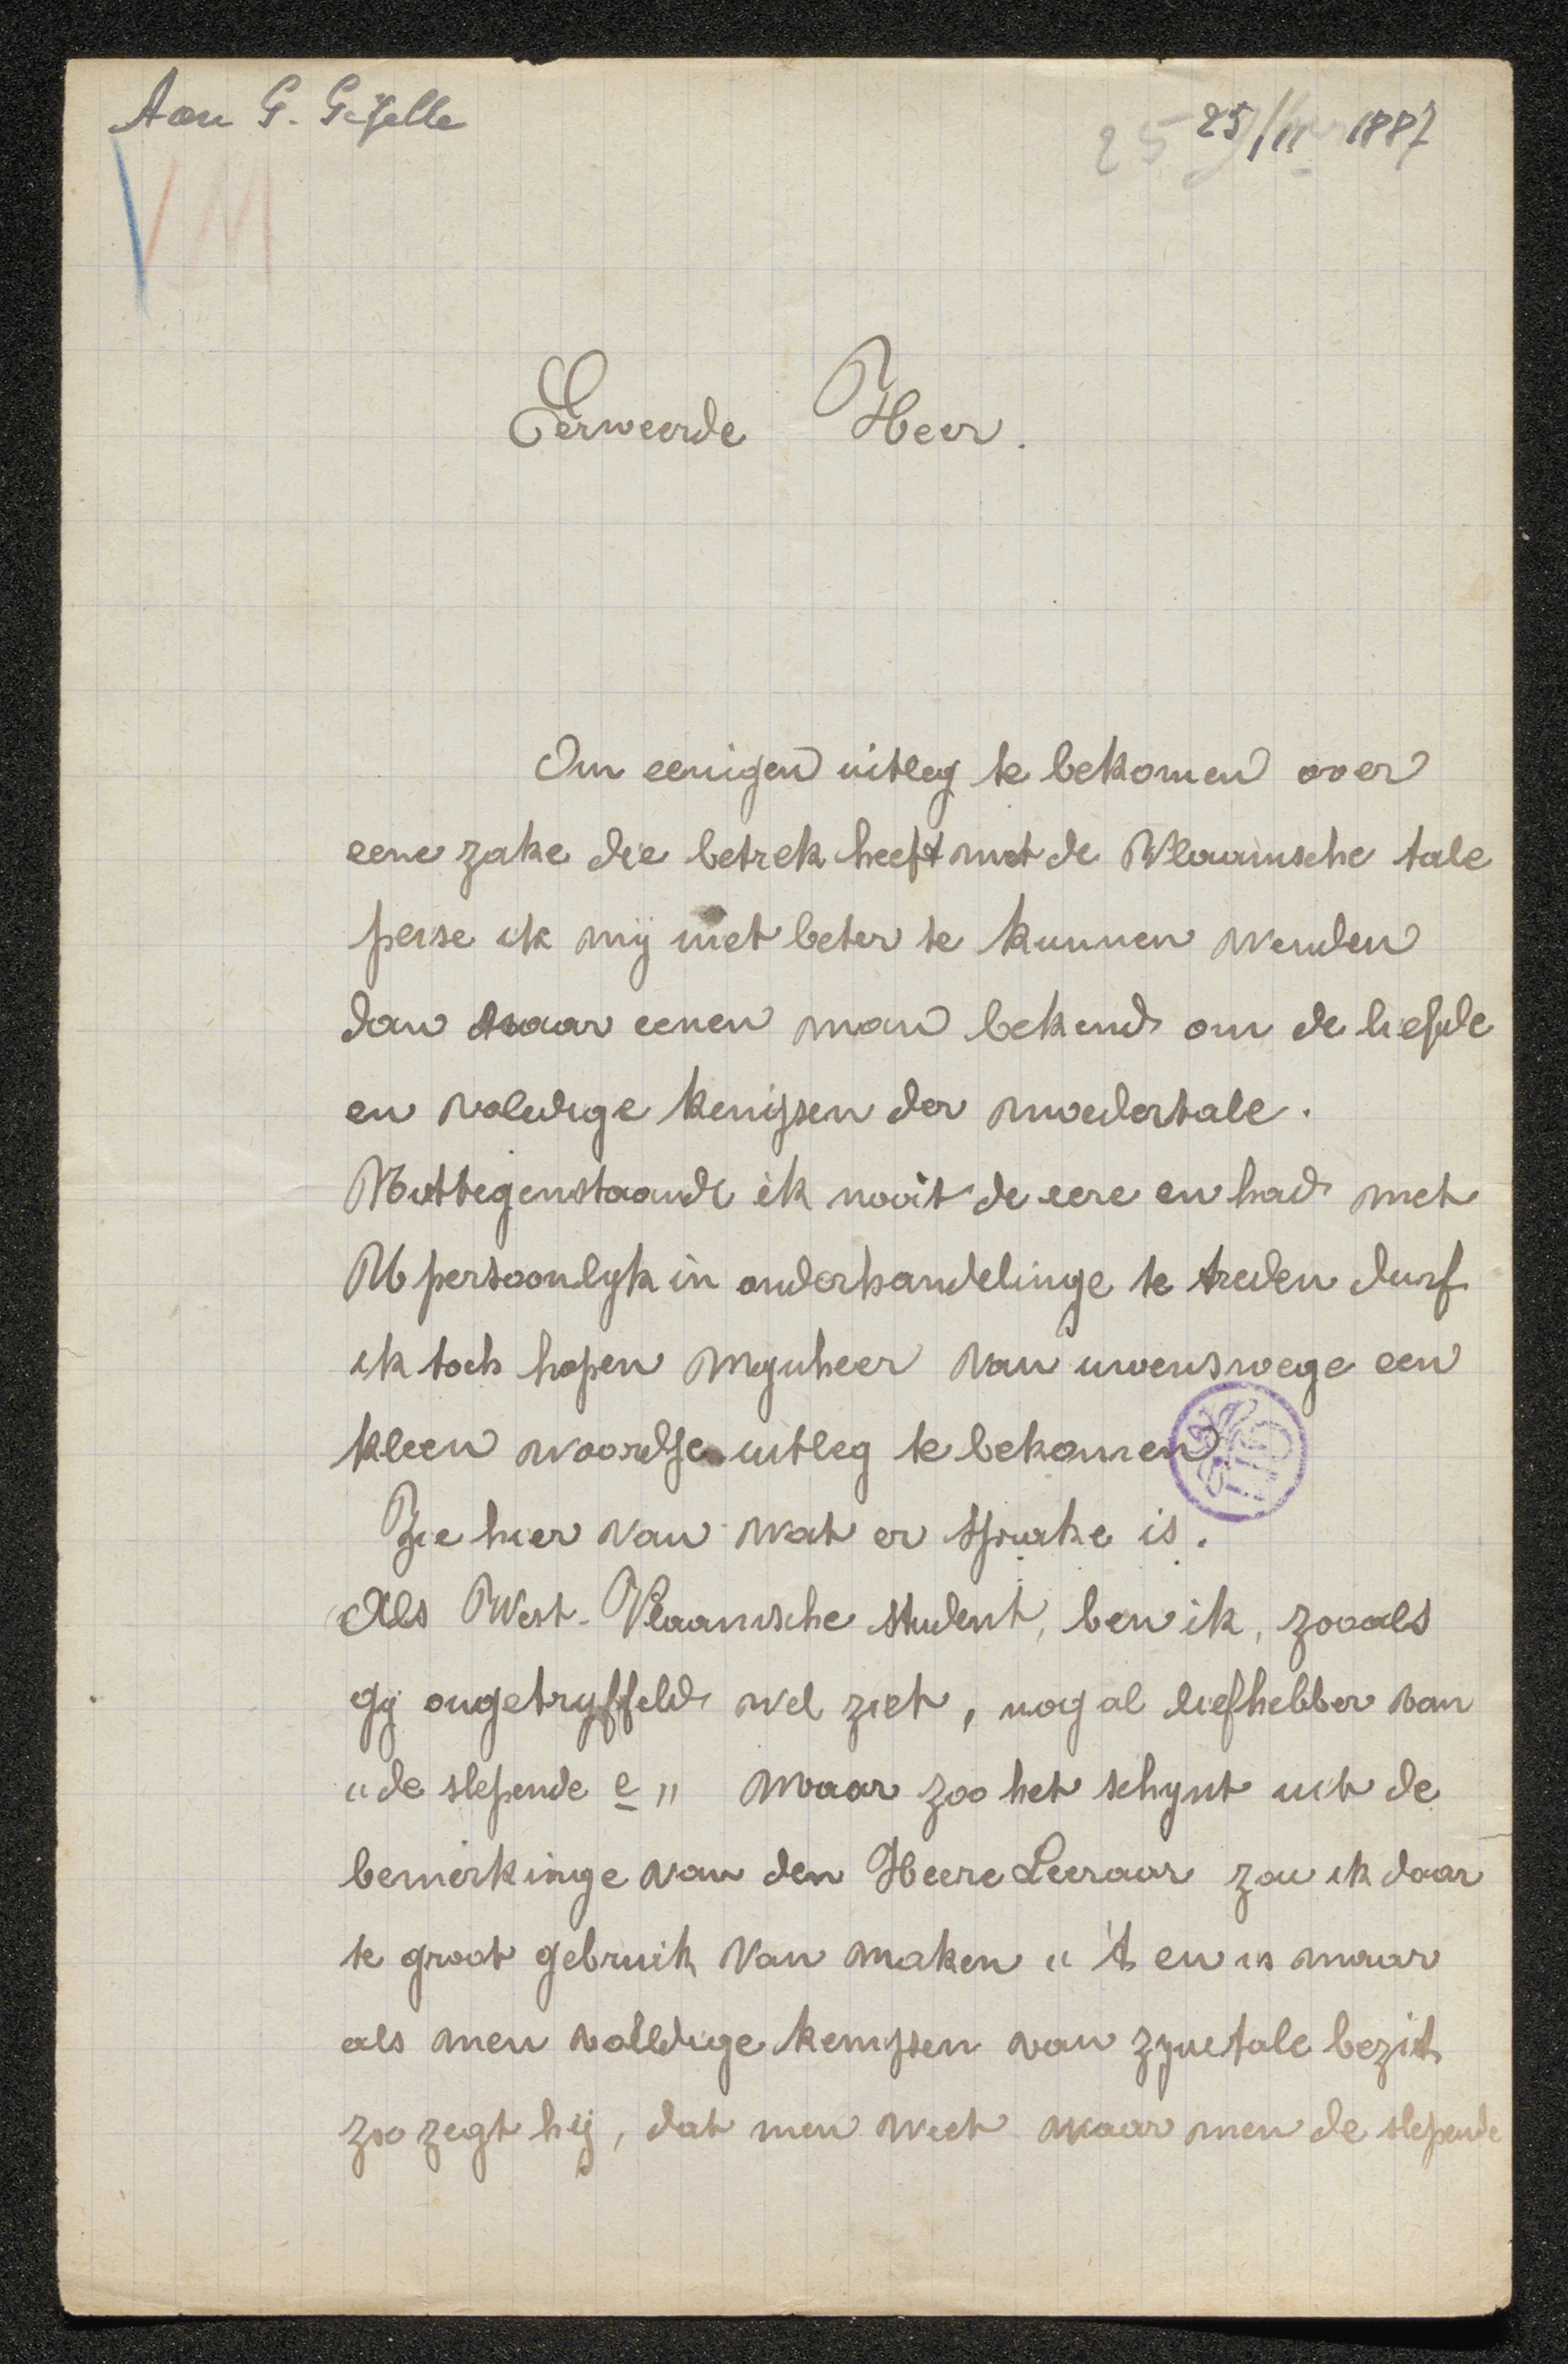 Aan G. Gezelle
25 25/11 1887
VM
Eerweerde Heer.
Om eenigen uitleg te bekomen over
eene zake die betrek heeft met de Vlaamsche tale
peise ik mij niet beter te kunnen wenden
dan naar eenen man bekend om de liefde
en volledige kenissen der moedertale.
Niettegenstaande ik nooit de eere en had met
U persoonlyk in onderhandelinge te treden durf
ik toch hopen Mynheer van uwenswege een
kleen woordje uitleg te bekomen.
Zie hier van wat er sprake is.
Als West-Vlaamsche student, ben ik, zooals
gij ongetwyffeld wel ziet, nog al liefhebber van
"de slepende e" Maar zoo het schynt uit de
bemerkinge van den Heere Leeraar zou ik daar
te groot gebruik van maken "'t en is maar
als men volledige kenissen van zyne tale bezit
zoo zegt hij, dat men weet waar men de slepende